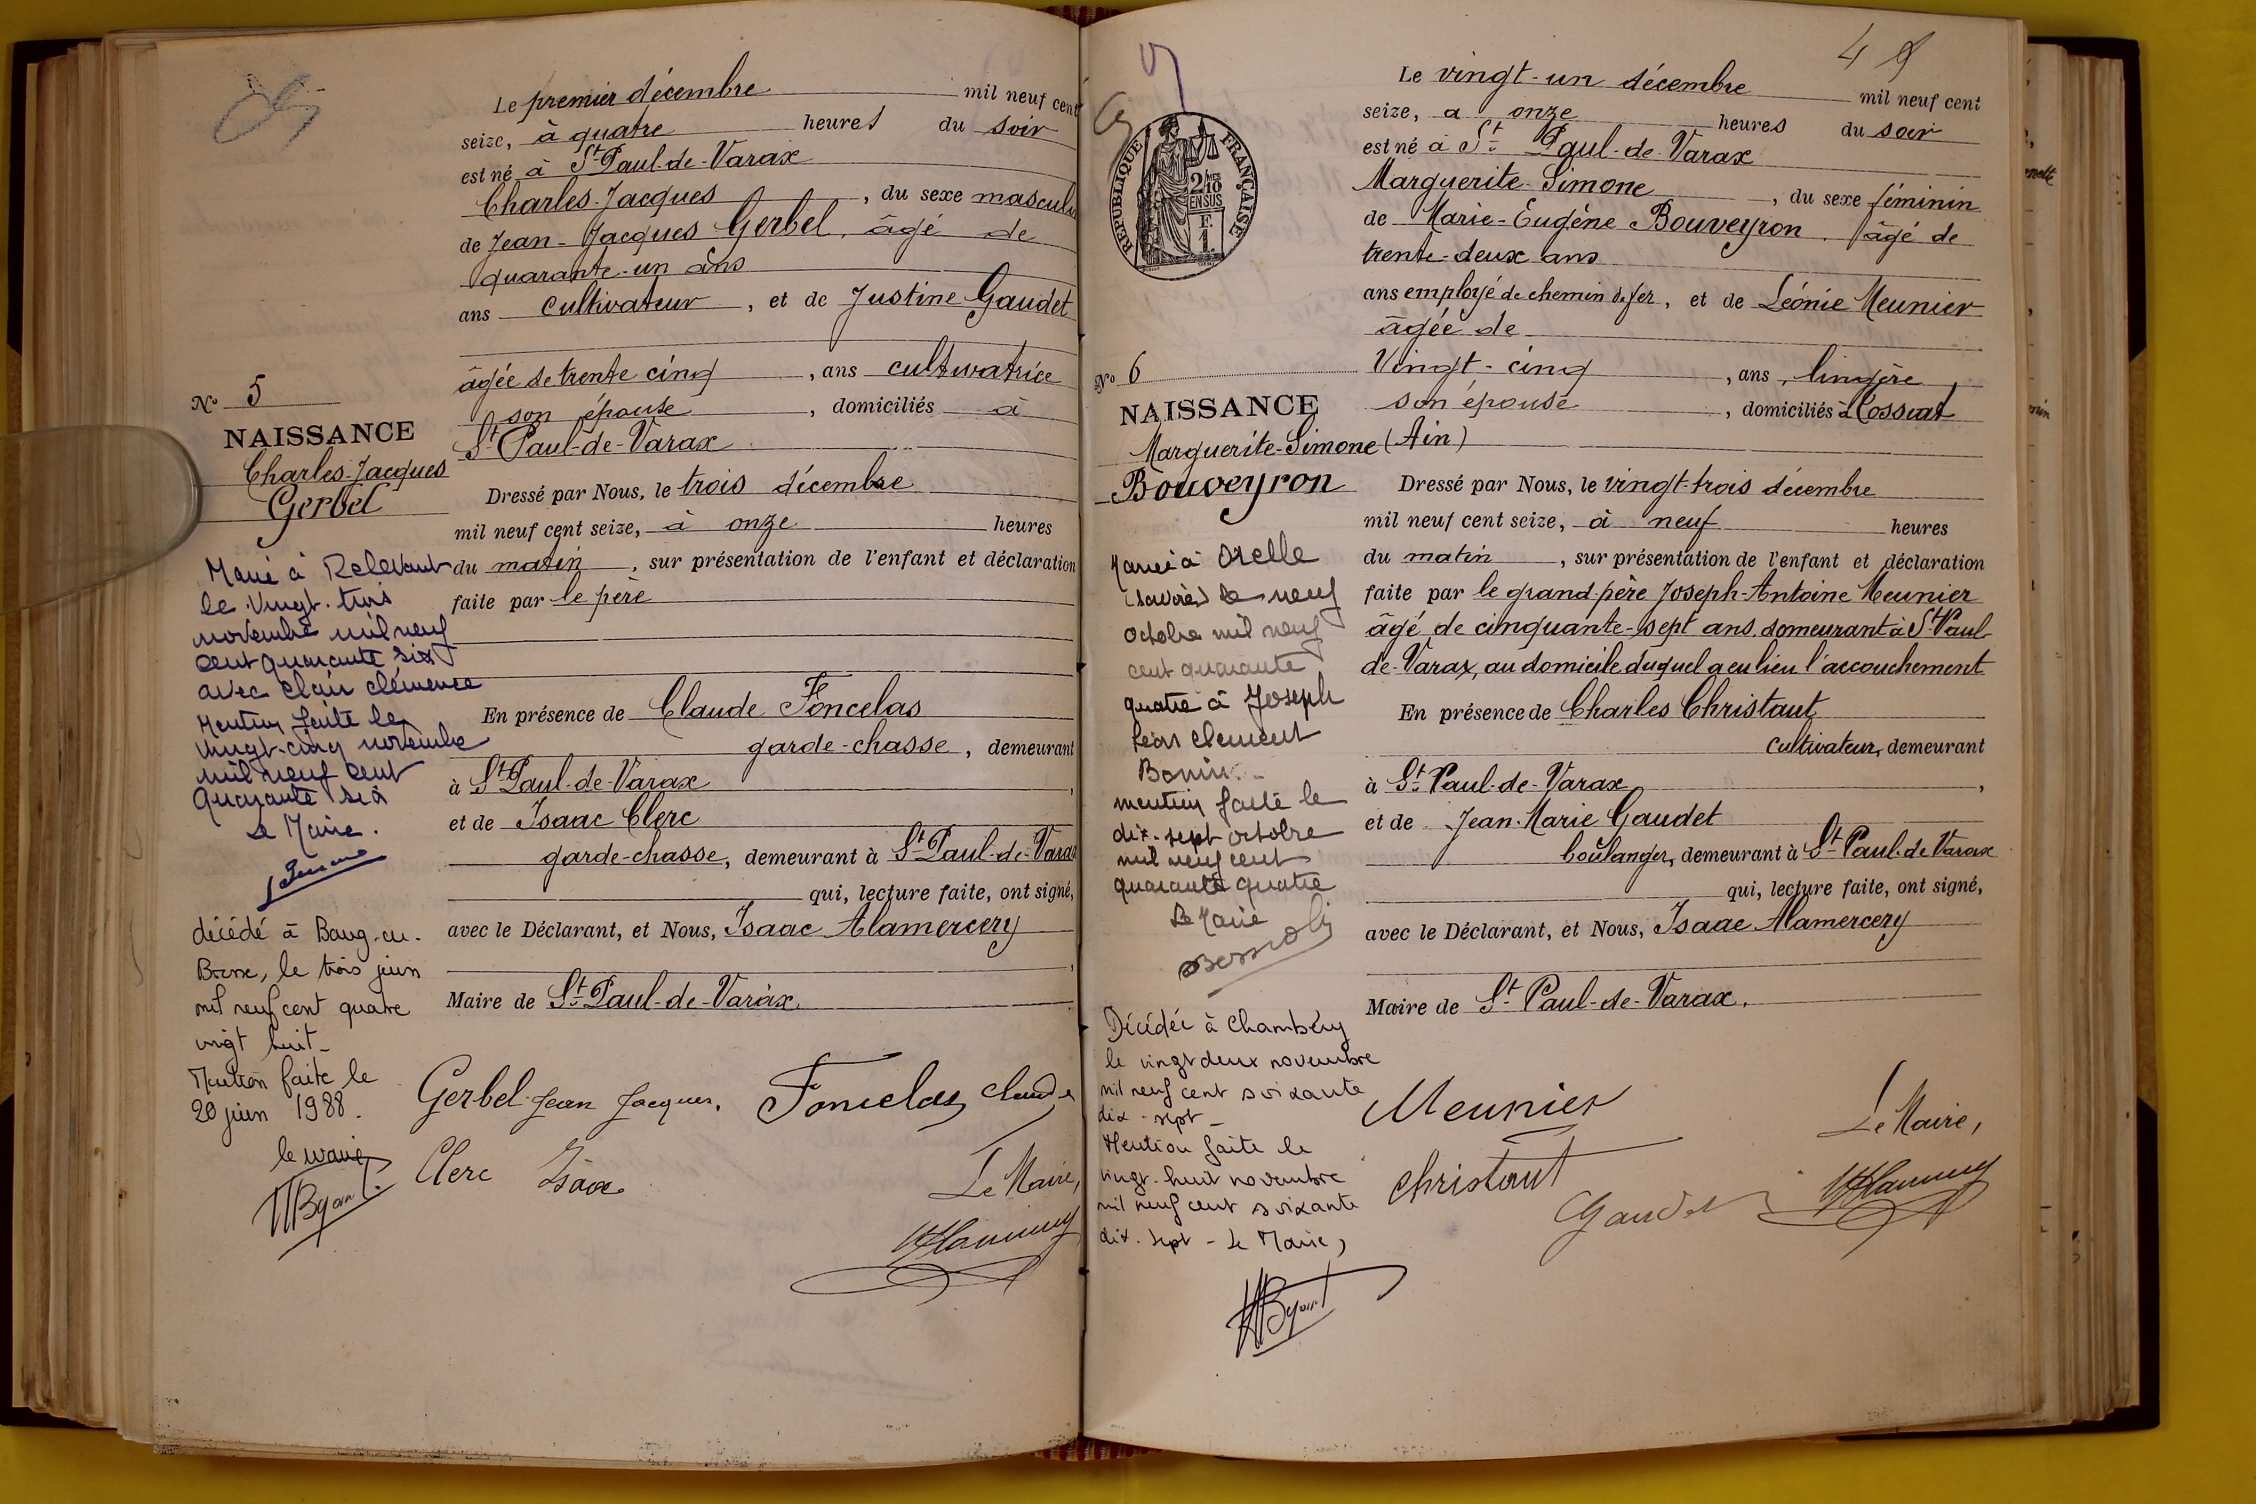 Le premier décembre mil neuf cent
seize, à quatre heures du soir
est né à St Paul-de-Varax
Charles-Jacques, du sexe masculin
de Jean-Jacques Gerbel, âgé de
quarante-un ans
ans cultivateur, et de Justine Gaudet
âgée de trente cinq, ans cultivatrice
son épouse, domiciliés à
St Paul-de-Varax
No 5
NAISSANCE
Charles-Jacques
Gerbel
Dressé par Nous, le trois décembre
mil neuf cent seize, à onze heures
du matin, sur présentation de l'enfant et déclaration
faite par le père
En présence de Claude Foncelas
garde-chasse, demeurant
à St Paul-de-Varax,
et de Isaac Clerc
garde-chasse, demeurant à St Paul-de-Varax
qui, lecture faite, ont signé,
avec le Déclarant, et Nous, Isaac Alamercery
Maire de St Paul-de-Varax.
Marié à Relevant
le vingt-trois
novembre mil neuf
cent quarante six
avec Clair Clémence
Mention faite le
vingt-cinq novembre
mil neuf cent
quarante six
Le Maire.
décédé à Bourg-en-
Bresse, le trois juin
mil neuf cent quatre
vingt huit_
Mention faite le
20 juin 1988.
le maire
Gerbel Jean Jacques. Foncelas Claude
Clerc Isaac
Le Maire,
4
Le vingt-un décembre mil neuf cent
seize, à onze heures du soir
est né à St Paul-de-Varax
Marguerite-Simone, du sexe féminin
de Marie-Eugène Bouveyron, âgé de
trente-deux ans
ans employé de chemin de fer, et de Léonie Meunier
âgée de
Vingt-cinq, ans, lingère,
son épouse, domiciliés à Cossiat
(Ain)
RÉPUBLIQUE FRANÇAISE
2/10
EN SUS
F.
1.
No 6
NAISSANCE
Marguerite-Simone
Bouveyron
Dressé par Nous, le vingt-trois décembre
mil neuf cent seize, à neuf heures
du matin, sur présentation de l'enfant et déclaration
faite par le grand-père Joseph-Antoine Meunier
âgé de cinquante-sept ans demeurant à St Paul-
de-Varax, au domicile duquel a eu lieu l'accouchement
En présence de Charles Christaut
cultivateur, demeurant
à St Paul-de-Varax,
et de Jean-Marie Gaudet
boulanger, demeurant à St Paul-de-Varax
qui, lecture faite, ont signé,
avec le Déclarant, et Nous, Isaac Alamercery
Maire de St Paul-de-Varax.
Mariée à Orelle
(Savoie) le neuf
octobre mil neuf
cent quarante
quatre à Joseph
Léon Clément
Bonin.
mention faite le
dix-sept octobre
mil neuf cent
quarante quatre
Le Maire
Décédée à Chambéry
le vingt deux novembre
mil neuf cent soixante
dix-sept_
Mention faite le
vingt-huit novembre
mil neuf cent soixante
dix-sept - Le Maire,
Meunier
Le Maire,
Christaut
Gaudet